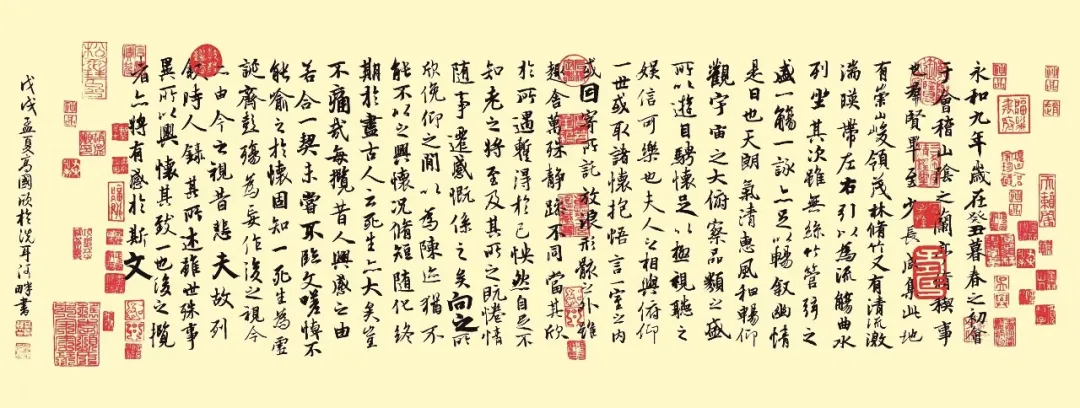 永和九年歲在癸丑暮春之初會
于會稽山陰之蘭亭脩稧事
也群賢畢至少長咸集此地
有崇山峻領茂林脩竹又有清流激
湍暎帶左右引以為流觴曲水
列坐其次雖無絲竹管弦之
盛一觴一詠亦足以暢敘幽情
是日也天朗氣清惠風和暢仰
觀宇宙之大俯察品類之盛
所以遊目騁懷足以極視聽之
娛信可樂也夫人之相與俯仰
一世或取諸懷抱悟言一室之內
或因寄所託放浪形骸之外雖
趣舍萬殊靜躁不同當其欣
於所遇暫得於己怏然自足不
知老之將至及其所之既惓情
隨事遷感慨係之矣向之所
欣俛仰之閒以為陳迹猶不
能不以之興懷況脩短隨化終
期於盡古人云死生亦大矣豈
不痛哉每攬昔人興感之由
若合一契未嘗不臨文嗟悼不
能喻之於懷固知一死生為虛
誕齊彭殤為妄作後之視今
亦由今之視昔悲夫故列
敘時人錄其所述雖世殊事
異所以興懷其致一也後之攬
者亦將有感於斯文
戊戌孟夏高國欣於洗耳河畔書